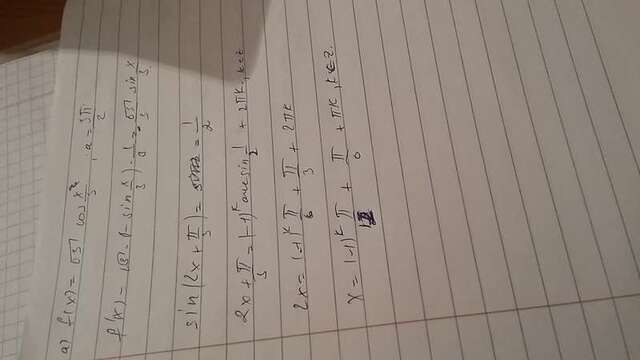 a) f(x) = √3 cos x/3, a = 3π/2
f'(x) = √3 · (- sin x/3) · 1/3 = - √3/3 sin x/3
sin (2x + π/3) = 1/2
2x + π/3 = (-1)^k arcsin 1/2 + 2πk, k∈Z.
2x = (-1)^k π/6 + π/3 + 2πk
x = (-1)^k π/12 + π/6 + πk, k∈Z.